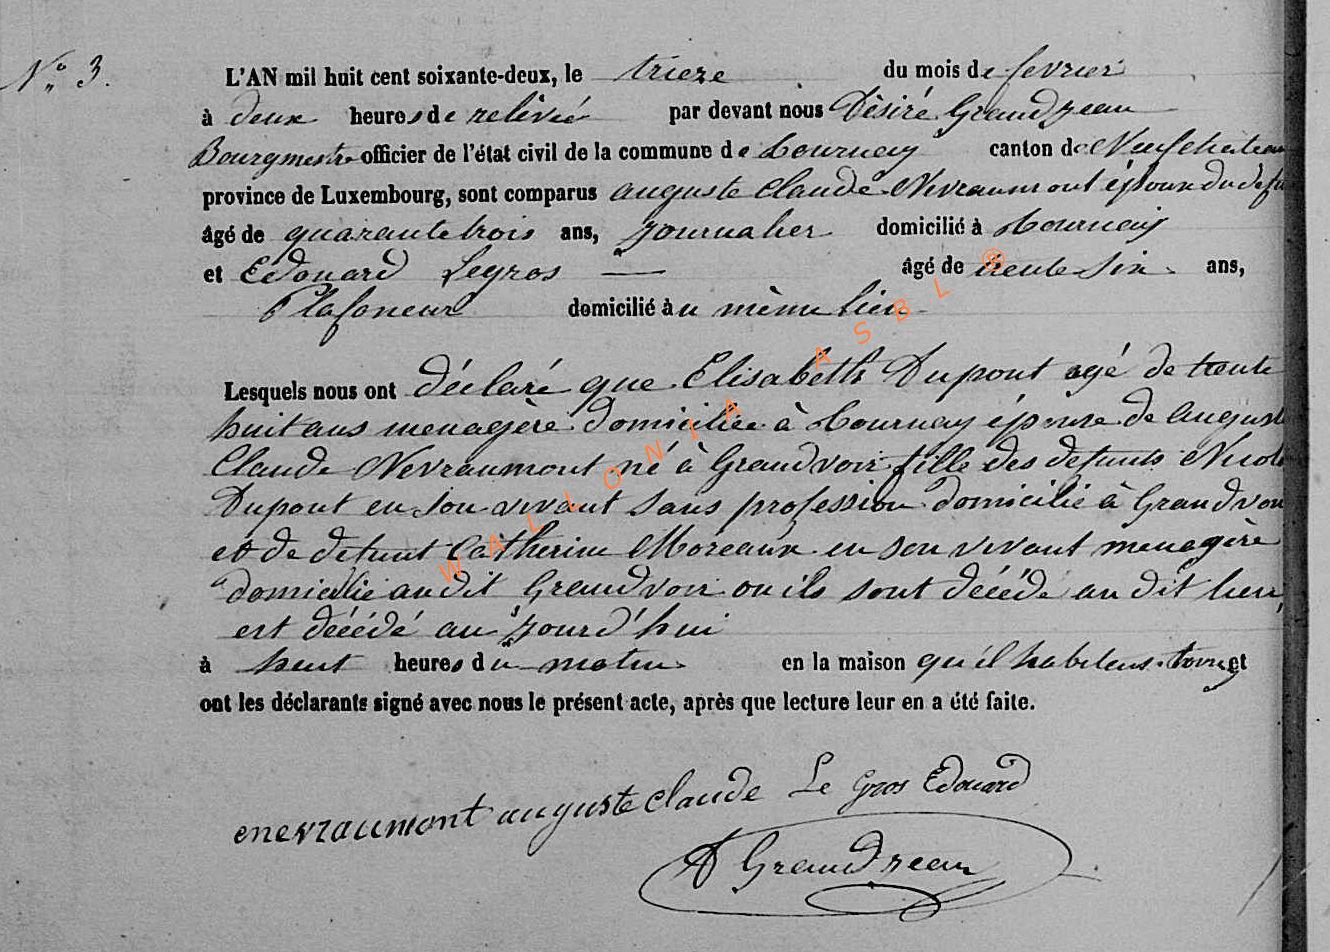 N° 3.
L'AN mil huit cent soixante-deux, le trieze du mois de fevrier
à deux heures de relévée par devant nous Désiré Grandjean
Bourgmestre officier de l'état civil de la commune de Tournay canton de Neufchateau
province de Luxembourg, sont comparus auguste Claude Nevraumont époux du défu
âgé de quarante trois ans, journalier domicilié à Tournay
et Edouard Legros — âgé de trente six ans,
Plafoneur domicilié au même lieu
Lesquels nous ont déclaré que Elisabeth Dupont agé de trente
huit ans menagère domiciliée à Tournay épouse de Auguste
Claude Nevraumont né à Grandvoir fille des defunts Nicol
Dupont en son vivant sans profession domicilié à Grandvoir
et de defunt Catherine Moreaux en son vivant menagère
domicilié au dit Grandvoir ou ils sont décédé au dit lieu,
est décédé au jourd'hui
à huit heures du matin en la maison qu'il habitens et
ont les déclarants signé avec nous le présent acte, après que lecture leur en a été faite.
enevraumont auguste claude Le Gros Edouard
D Grandjean
WALLONIA ASBL ®